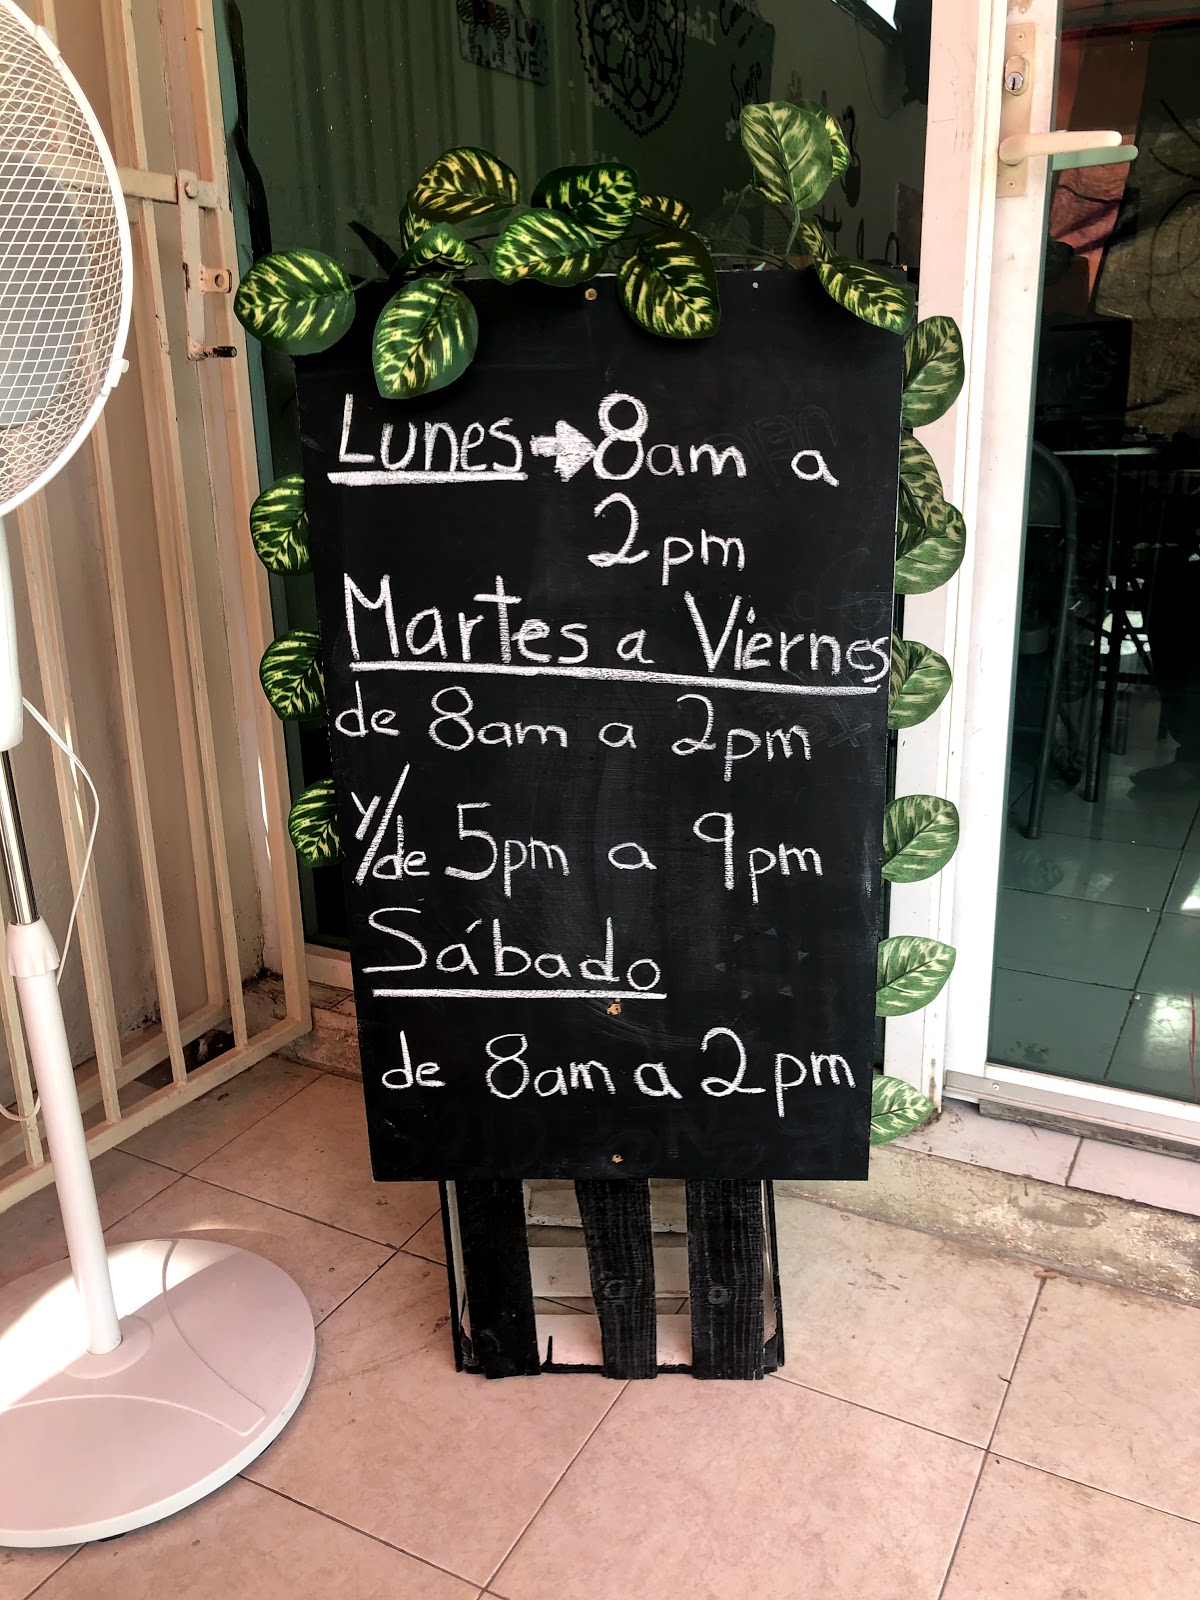 LOVE
Sueño
Lunes → 8am a
2pm
Martes a Viernes
de 8am a 2pm
y/de 5pm a 9pm
Sábado
de 8am a 2pm